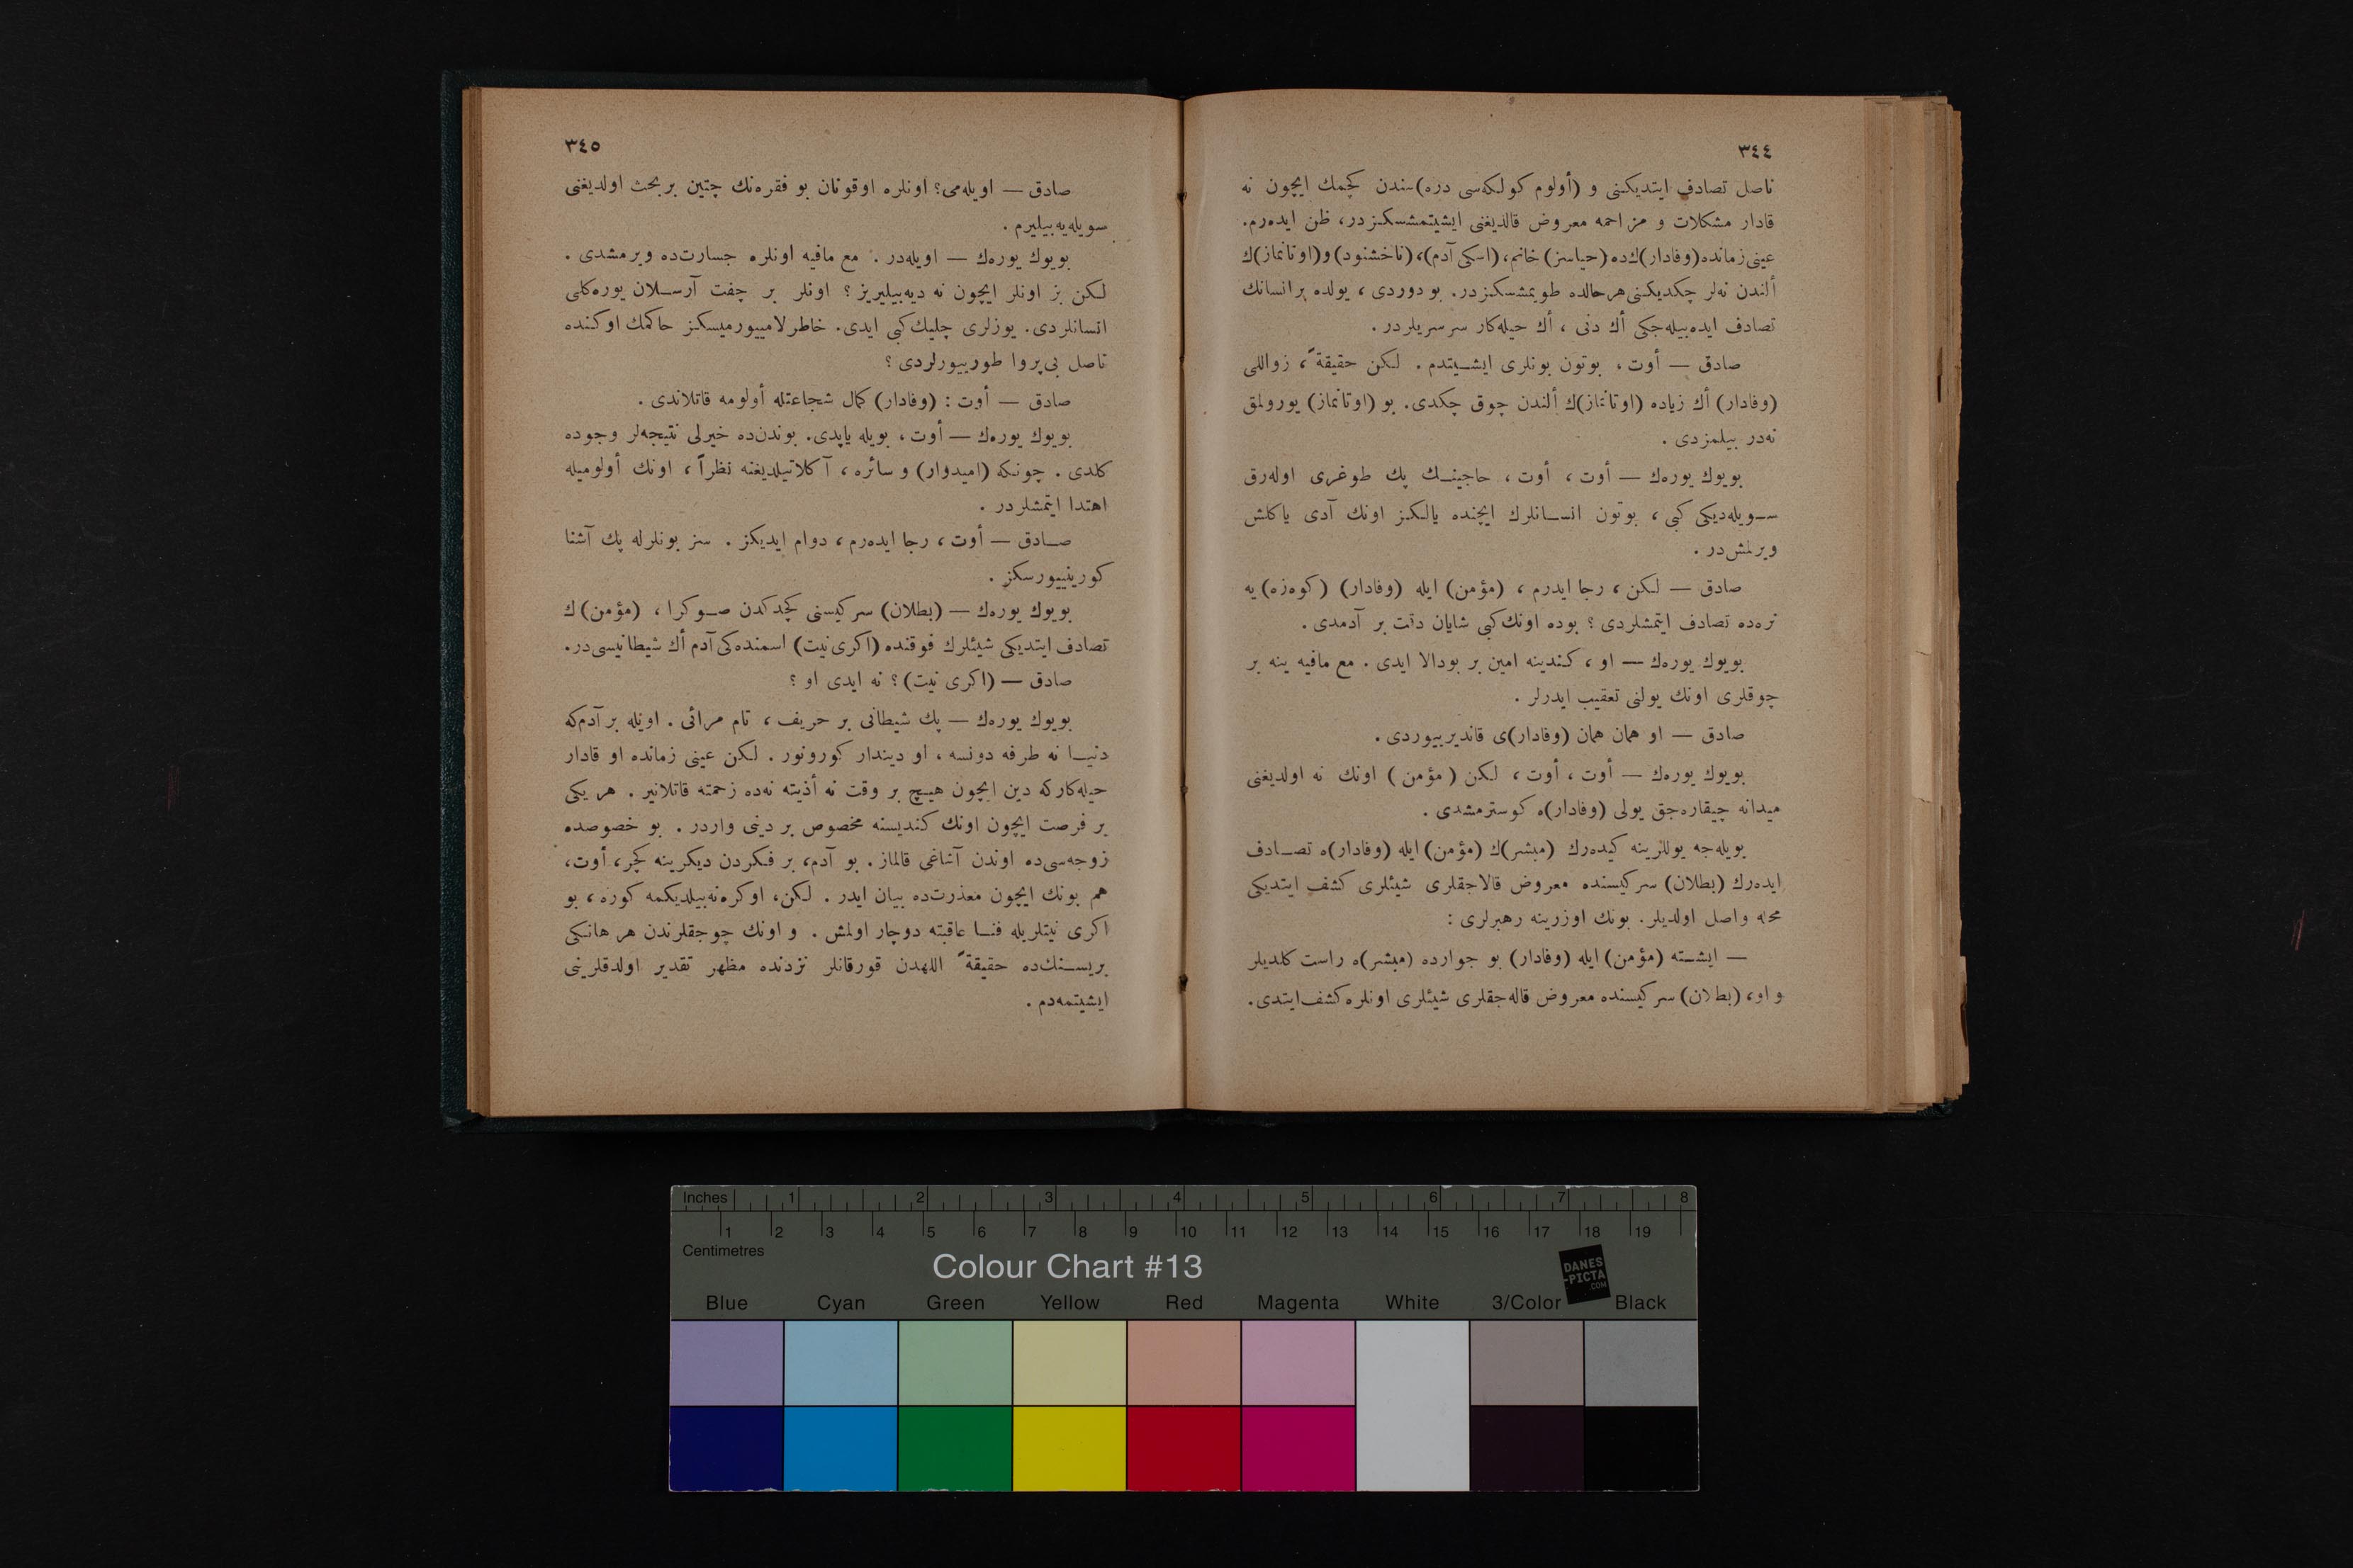 ٣٤٤
ناصل تصادف ايتديكنى و (أولوم كولكه‌سى دره)سندن كچمك ايچون نه
قادار مشكلات و مزاحمه معروض قالديغنى ايشيتمشسكزدر، ظن ايده‌رم.
عينى زمانده (وفادار)ك‌ده (حياسز) خانم، (اسكى آدم)، (ناخشنود) و (اوتانماز)ك
ألندن نه‌لر چكديكنى هرحالده طويمشسكزدر. بو دوردى، يولده برانسانك
تصادف ايده‌بيله‌جكى أك دنى ، أك حيله‌كار سرسريلردر.
صادق — أوت ، بوتون بونلرى ايشـيتدم . لكن حقيقةً، زواللى
(وفادار) أك زياده (اوتانماز)ك ألندن چوق چكدى. بو (اوتانماز) يورولمق
نه‌در بيلمزدى .
بويوك يورەك — أوت ، أوت ، حاجينـك پك طوغرى اوله‌رق
سـويله‌ديكى كبى ، بوتون انسـانلرك ايچنده يالكز اونك آدى ياكلش
ويرلمش‌در .
صادق — لكن ، رجا ايدرم ، (مؤمن) ايله (وفادار) (كوه‌زه) يه
نره‌ده تصادف ايتمشلردى ؟ بوده اونك كبى شايان دقت بر آدمدى .
بويوك يورەك — او ، كندينه امين بر بودالا ايدى . مع مافيه ينه بر
چوقلرى اونك يولنى تعقيب ايدرلر .
صادق — او همان همان (وفادار)ى قانديرييوردى .
بويوك يورەك — أوت ، أوت ، لكن (مؤمن) اونك نه اولديغنى
ميدانه چيقاره‌جق يولى (وفادار)ه كوسترمشدى .
بويله‌جه يوللرينه كيده‌رك (مبشر)ك (مؤمن) ايله (وفادار)ه تصـادف
ايده‌رك (بطلان) سركيسنده معروض قالاجقلرى شيئلرى كشف ايتديكى
محله واصل اولديلر. بونك اوزرينه رهبرلرى :
— ايشـته (مؤمن) ايله (وفادار) بو جوارده (مبشر)ه راست كلديلر
و او، (بطلان) سركيسنده معروض قاله‌جقلرى شيئلرى اونلره كشف ايتدى.
٣٤٥
صادق — اويله‌مى؟ اونلره اوقونان بو فقره‌نك چتين بر بحث اولديغنى
سويله‌يه‌بيليرم .
بويوك يورەك — اويله‌در . مع مافيه اونلره جسارت‌ده ويرمشدى .
لكن بز اونلر ايچون نه ديه‌بيليريز ؟ اونلر بر چفت آرسـلان يوره‌كلى
انسانلردى. يوزلرى چليك كبى ايدى. خاطرلامييورميسكز حاكمك اوكنده
ناصل بى‌پروا طورييورلردى ؟
صادق — أوت : (وفادار) كمال شجاعتله أولومه قاتلاندى .
بويوك يورەك — أوت ، بويله ياپدى. بوندن‌ده خيرلى نتيجه‌لر وجوده
كلدى . چونكه (اميدوار) و سائره ، آكلاتيلديغنه نظراً ، اونك أولوميله
اهتدا ايتمشلردر .
صـادق — أوت ، رجا ايده‌رم ، دوام ايديكز . سز بونلرله پك آشنا
كورينييورسكز .
بويوك يورەك — (بطلان) سركيسنى كچدكدن صـوكرا ، (مؤمن)ك
تصادف ايتديكى شيئلرك فوقنده (اكرى نيت) اسمنده‌كى آدم أك شيطانيسى‌در.
صادق — (اكرى نيت) ؟ نه ايدى او ؟
بويوك يورەك — پك شيطانى بر حريف ، تام مرائى . اويله بر آدم‌كه
دنيـا نه طرفه دونسه ، او ديندار كورونور . لكن عينى زمانده او قادار
حيله‌كاركه دين ايچون هيـچ بر وقت نه أذيته نه‌ده زحمته قاتلانير . هر يكى
بر فرصت ايچون اونك كنديسنه مخصوص بر دينى واردر . بو خصوصده
زوجه‌سى‌ده اوندن آشاغى قالماز . بو آدم، بر فكردن ديكرينه كچر، أوت،
هم بونك ايچون معذرت‌ده بيان ايدر . لكن، اوكره‌نه‌بيلديكمه كوره ، بو
اكرى نيتلريله فنـا عاقبته دوچار اولمش . و اونك چوجقلرندن هر هانكى
بريسـنك‌ده حقيقةً اللهدن قورقانلر نزدنده مظهر تقدير اولدقلرينى
ايشيتمه‌دم .
Inches 1 2 3 4 5 6 7 8
1 2 3 4 5 6 7 8 9 10 11 12 13 14 15 16 17 18 19
Centimetres
Colour Chart #13
DANES
-PICTA
.COM
Blue Cyan Green Yellow Red Magenta White 3/Color Black